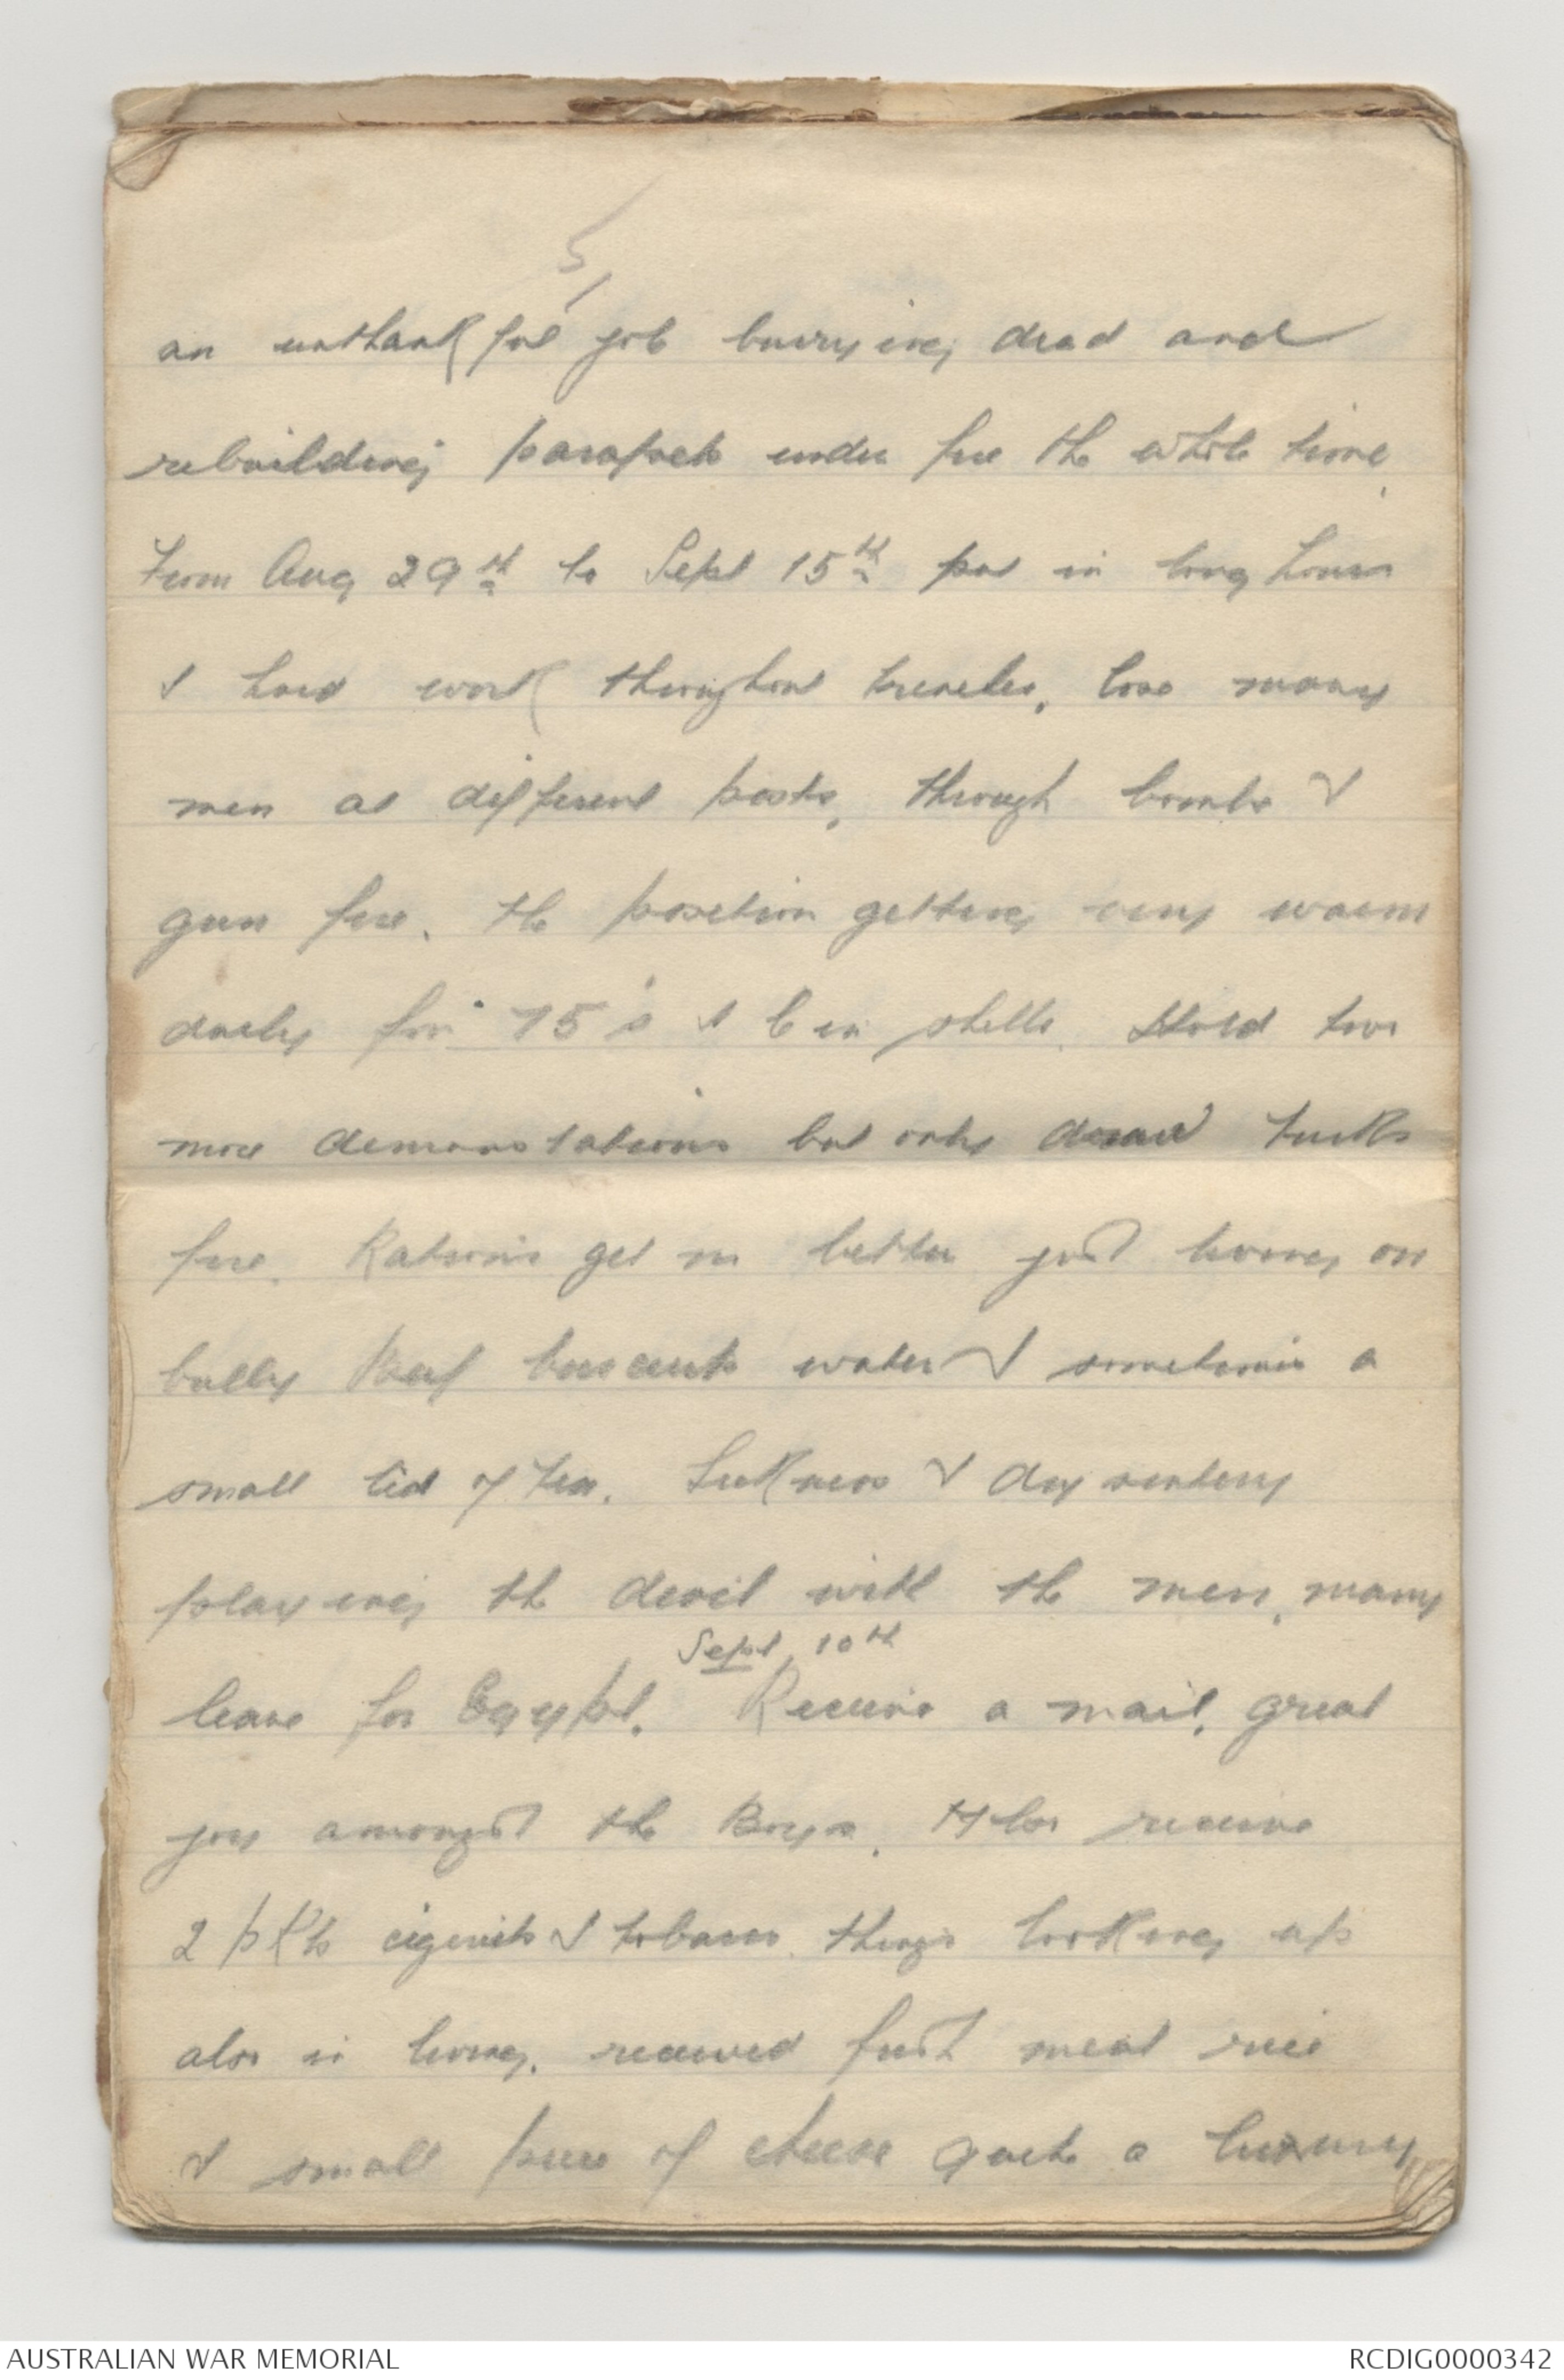 5/
an unthankful job burrying dead and
rebuilding parapets under fire the whole time.
From Aug 29th to Sept 15th put in long hours
& hard work throughout trenches, lose many
men at different posts, through bombs &
gun fire. the position getting very warm
daily for 75's & 6 in shells. Hold two
more demonstations but only draw turks
fire. Rations get no better just living on
bully Beef biscuits water & sometimes a
small tid of tea. Sickness & dysentery
playing the devil with the men, many
Sept 10th
leave for Egypt. Receive a mail, great
joy amongst the Boys. Also receive
2 pkts cigerets & tobacco. things looking up
also in living. received first meal rice
& small piece of cheese quite a luxury